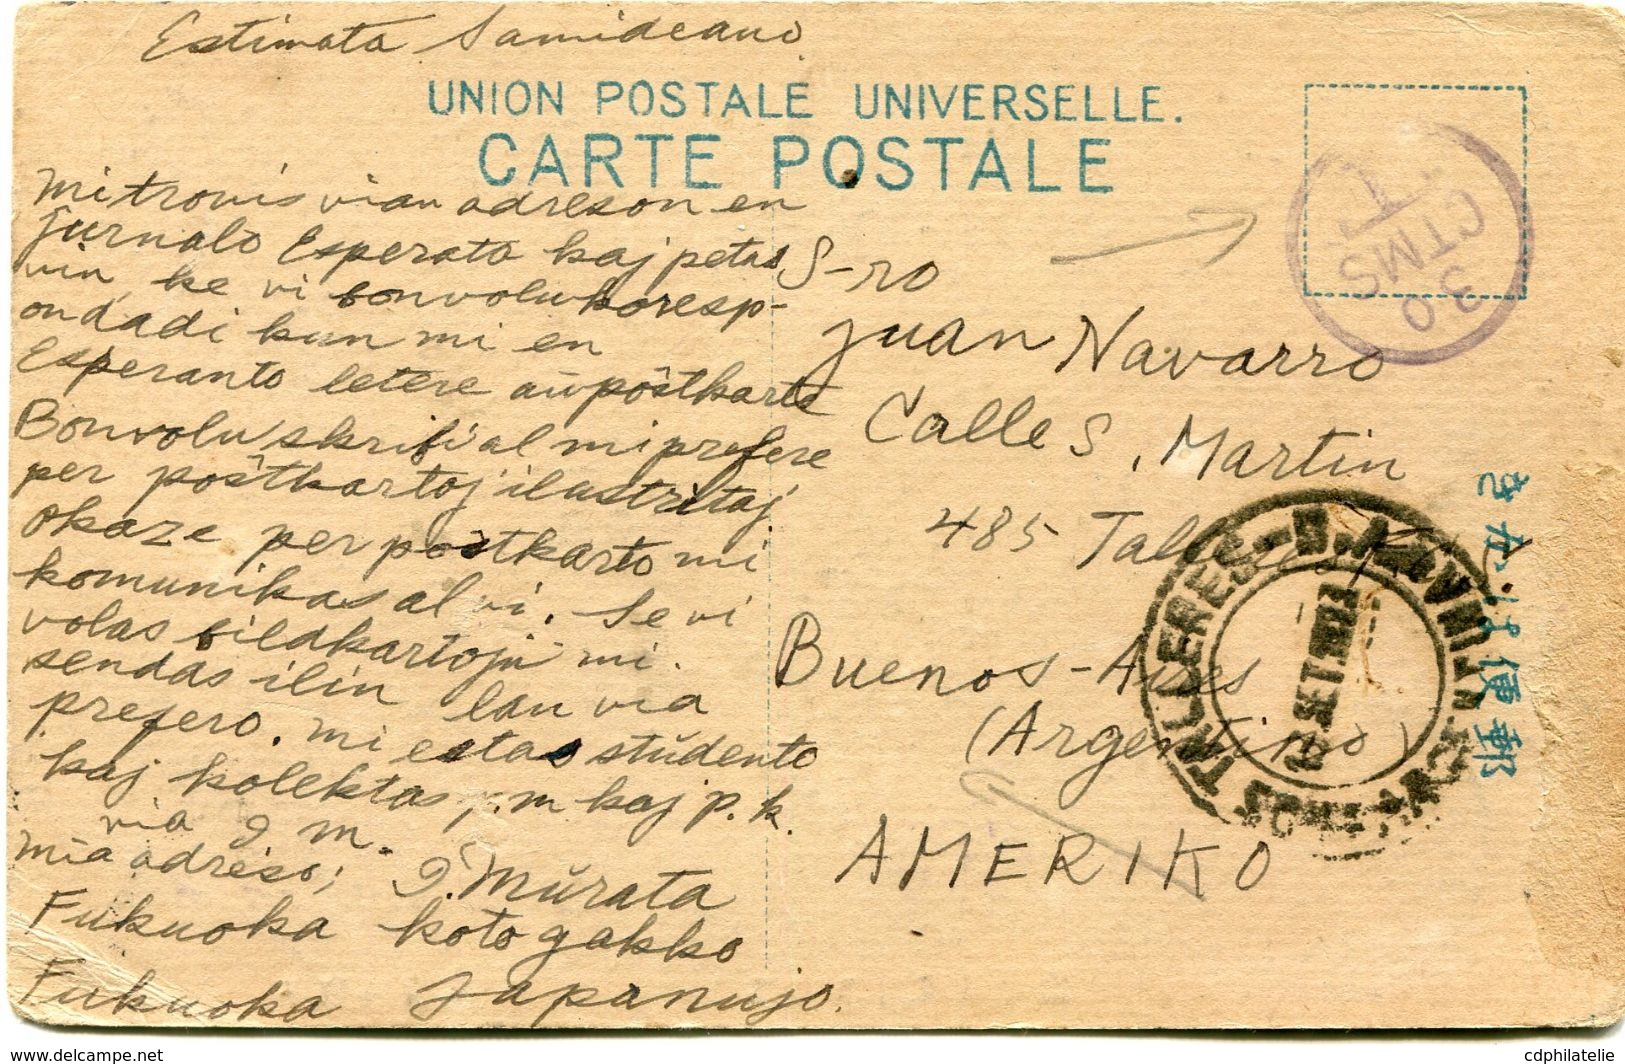 Estimata Samideano
UNION POSTALE UNIVERSELLE.
CARTE POSTALE
mi trovis vian adreson en
jurnalo Esperata kaj petas
vin, ke vi bonvolu koresp-
ondadi kun mi en
Esperanto letere aŭ poŝtkarte
Bonvolu skribi al mi prefere
per poŝtkartoj ilustritaj.
okaze per postkarto mi
komunikas al vi. Se vi
volas bildkartojn mi
sendas ilin laŭ via
prefero. mi estas studento
kaj kolektas p.m kaj p.k.
via J M.
mia adreso; J. Murata
Fukuoka koto gakko
Fukuoka Japanujo.
S-ro
Juan Navarro
Calle S. Martin
485
Buenos-Aires
(Argentino)
AMERIKO
30
CTMS
T
TALLERES
SET.
郵便はがき
cdphilatelie